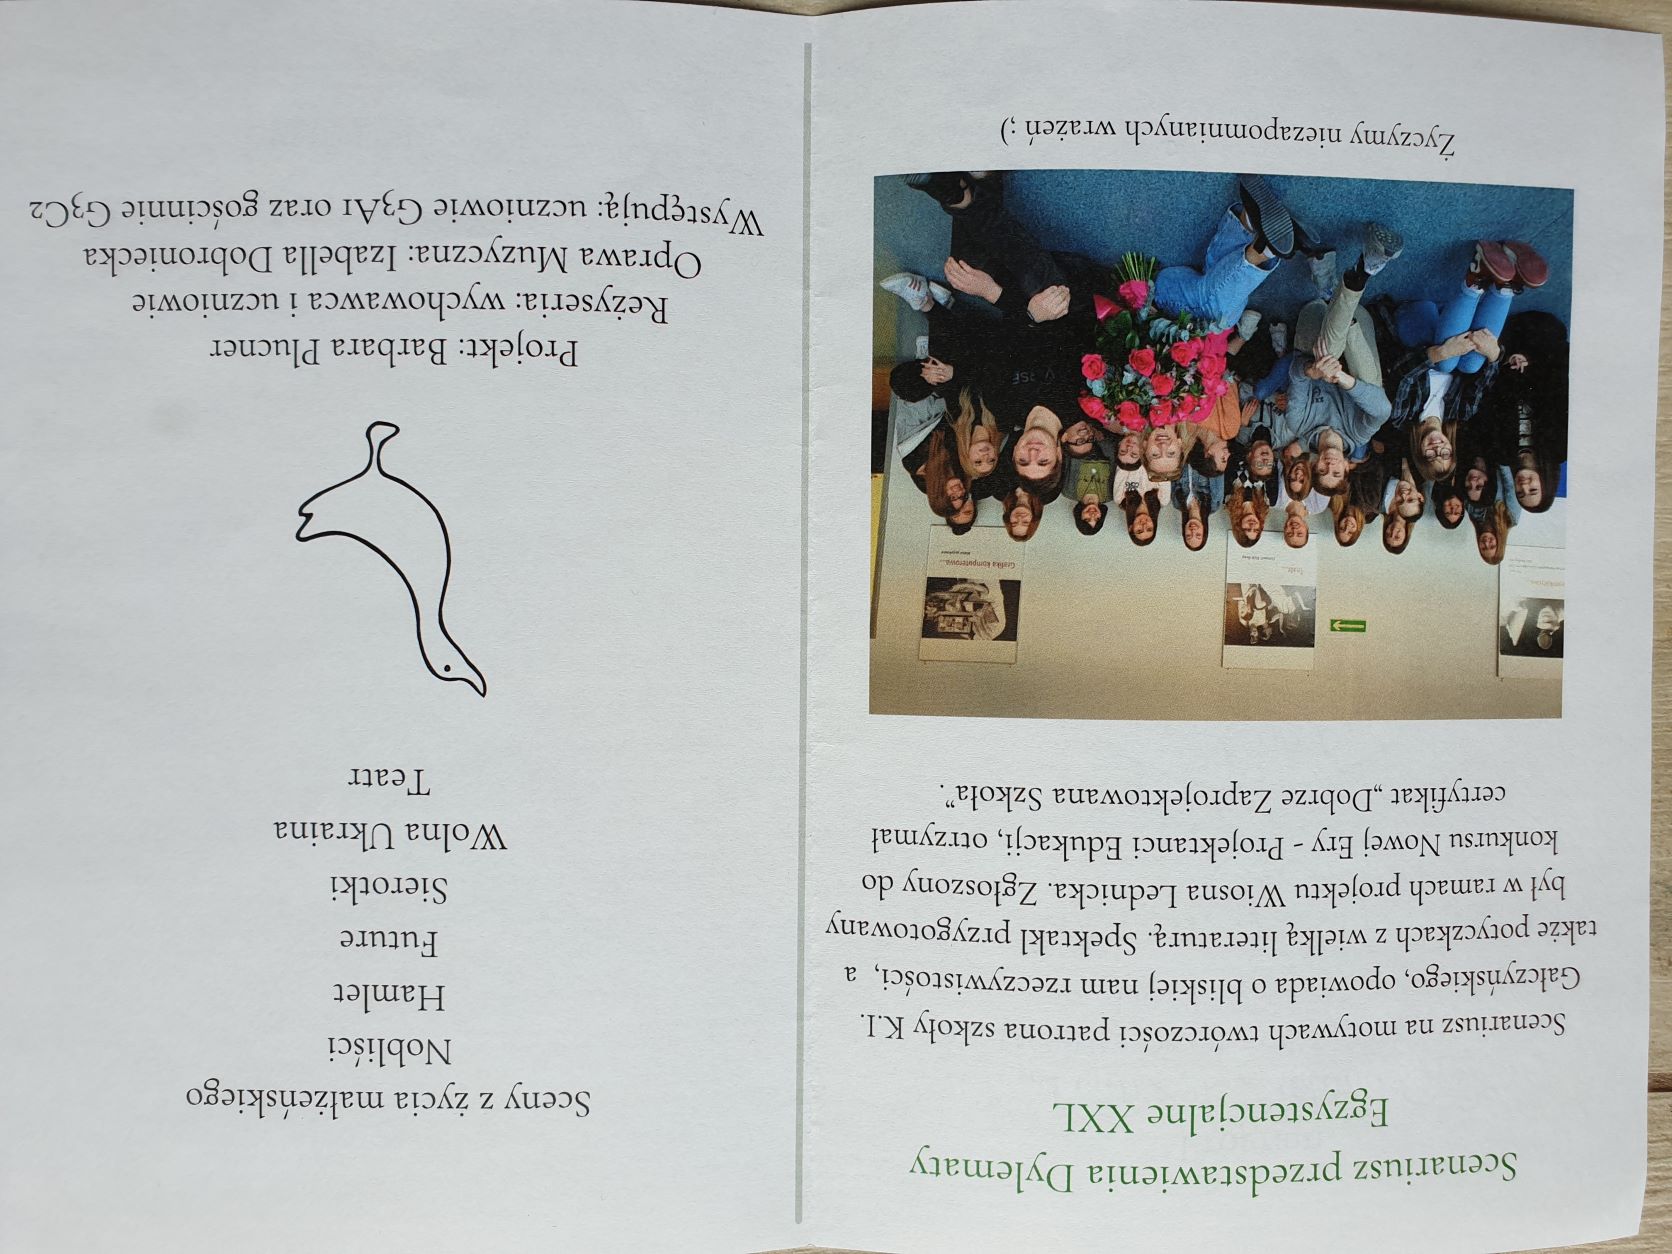 Scenariusz przedstawienia Dylematy
Egzystencjalne XXL
Scenariusz na motywach twórczości patrona szkoły K.I.
Gałczyńskiego, opowiada o bliskiej nam rzeczywistości, a
także potyczkach z wielką literaturą. Spektakl przygotowany
był w ramach projektu Wiosna Lednicka. Zgłoszony do
konkursu Nowej Ery - Projektanci Edukacji, otrzymał
certyfikat „Dobrze Zaprojektowana Szkoła”.
Grafika komputerowa...
Teatr...
Życzymy niezapomnianych wrażeń ;)
Sceny z życia małżeńskiego
Nobliści
Hamlet
Future
Sierotki
Wolna Ukraina
Teatr
Projekt: Barbara Plucner
Reżyseria: wychowawca i uczniowie
Oprawa Muzyczna: Izabella Dobroniecka
Występują: uczniowie G3A1 oraz gościnnie G3C2